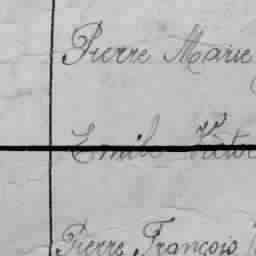 Pierre Marie
Emile Victo
Pierre François